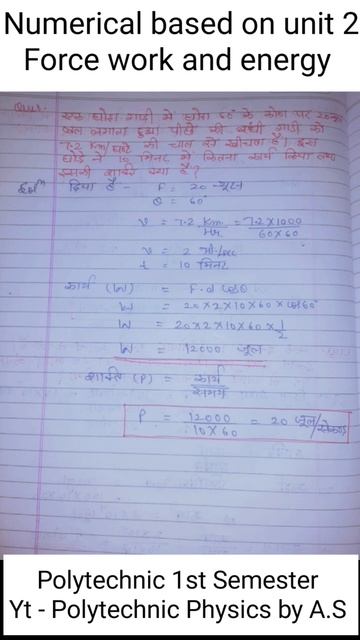 Numerical based on unit 2
Force work and energy
Ques.
एक घोड़ा गाड़ी में घोड़ा 60° के कोण पर 20 न्यूटन
बल लगाता हुआ पीछे की बंधी गाड़ी को
7.2 Km/घण्टे की चाल से खींचता है। इस
घोड़े ने 10 मिनट में कितना कार्य किया तथा
इसकी शक्ति क्या है?
Solⁿ दिया है - F = 20 न्यूटन
θ = 60°
v = 7.2 Km/Hr = 7.2 x 1000 / 60 x 60
v = 2 मी०/sec
t = 10 मिनट
कार्य (W) = F.d cosθ
W = 20 x 2 x 10 x 60 x cos60°
W = 20 x 2 x 10 x 60 x 1/2
W = 12000 जूल
शक्ति (P) = कार्य / समय
P = 12000 / 10 x 60 = 20 जूल/सेकण्ड
Polytechnic 1st Semester
Yt - Polytechnic Physics by A.S